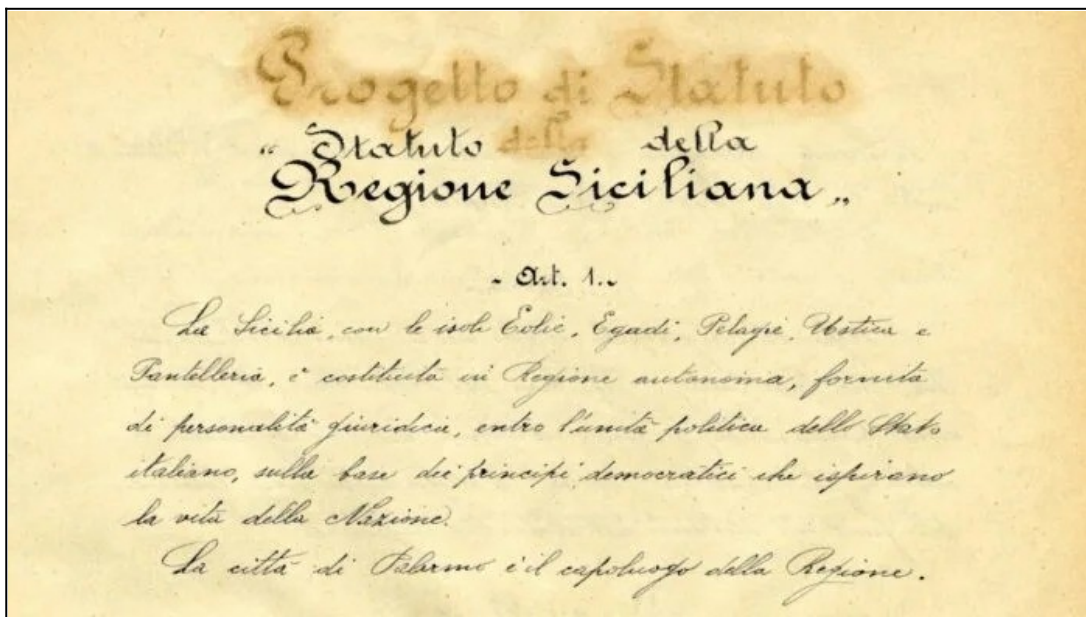 Progetto di Statuto
"Statuto della della
Regione Siciliana"
- Art. 1. -
La Sicilia, con le isole Eolie, Egadi, Pelagie, Ustica e
Pantelleria, è costituita in Regione autonoma, fornita
di personalità giuridica, entro l'unità politica dello Stato
italiano, sulla base dei principi democratici che ispirano
la vita della Nazione.
La città di Palermo è il capoluogo della Regione.